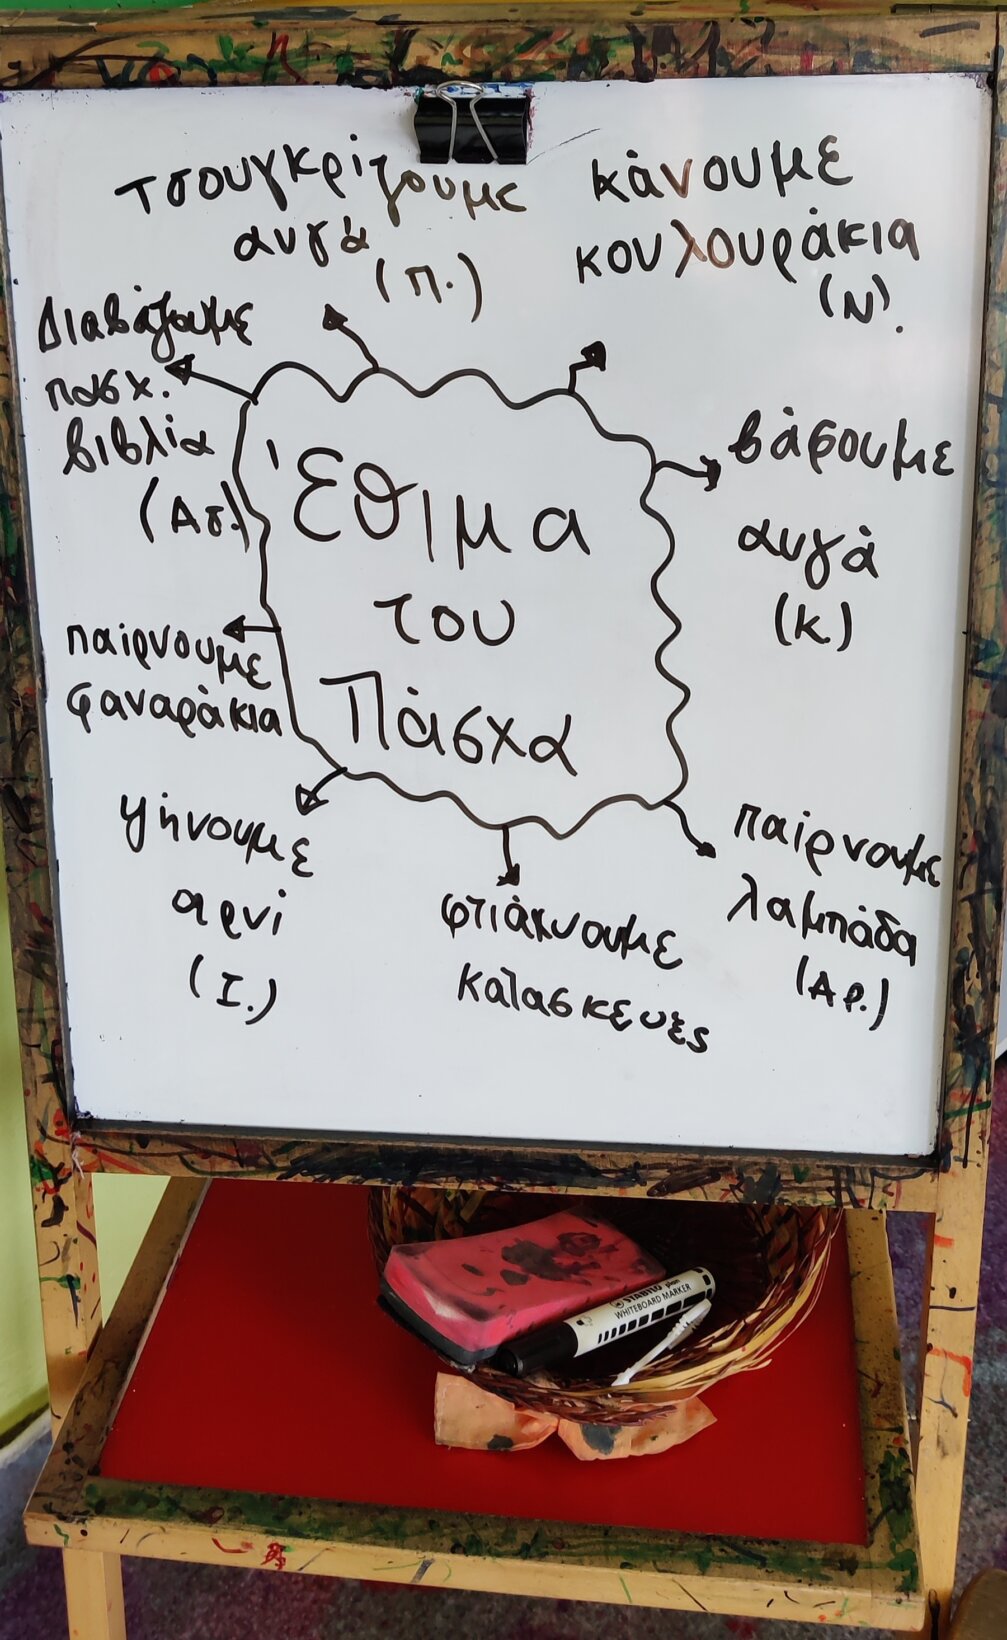 τσουγκρίζουμε
αυγά
(Π.)
κάνουμε
κουλουράκια
(Ν).
Διαβάζουμε
πασχ.
βιβλία
(Ασ.)
βάφουμε
αυγά
(Κ.)
Έθιμα
του
Πάσχα
παίρνουμε
φαναράκια
ψήνουμε
αρνί
(Ι.)
φτιάχνουμε
κατασκευές
παίρνουμε
λαμπάδα
(Αρ.)
STABILO plan
WHITEBOARD MARKER